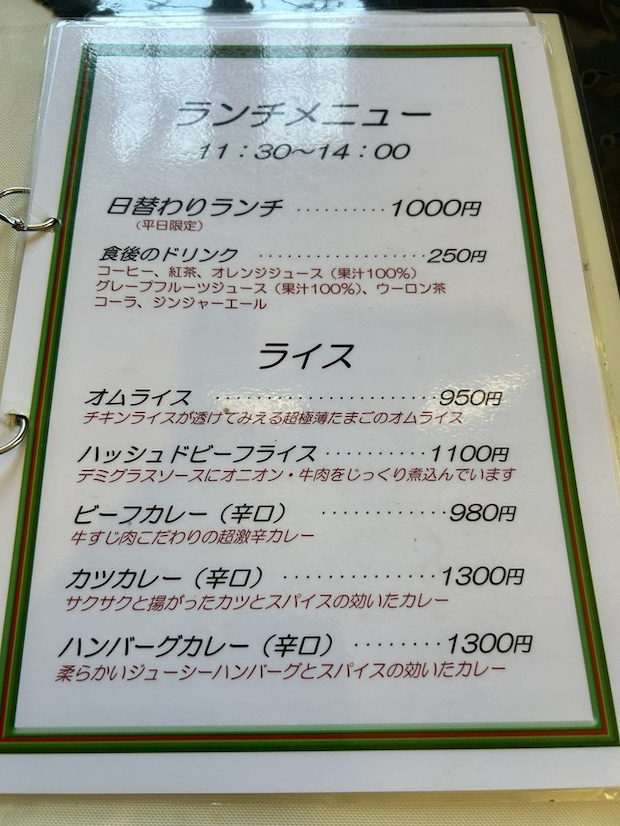 ランチメニュー
11：30～14：00
日替わりランチ ·········· 1000円
（平日限定）
食後のドリンク ·················· 250円
コーヒー、紅茶、オレンジジュース（果汁100%）
グレープフルーツジュース（果汁100%）、ウーロン茶
コーラ、ジンジャーエール
ライス
オムライス ························ 950円
チキンライスが透けてみえる超極薄たまごのオムライス
ハッシュドビーフライス ··········· 1100円
デミグラスソースにオニオン・牛肉をじっくり煮込んでいます
ビーフカレー（辛口） ············ 980円
牛すじ肉こだわりの超激辛カレー
カツカレー（辛口） ·············· 1300円
サクサクと揚がったカツとスパイスの効いたカレー
ハンバーグカレー（辛口） ········ 1300円
柔らかいジューシーハンバーグとスパイスの効いたカレー